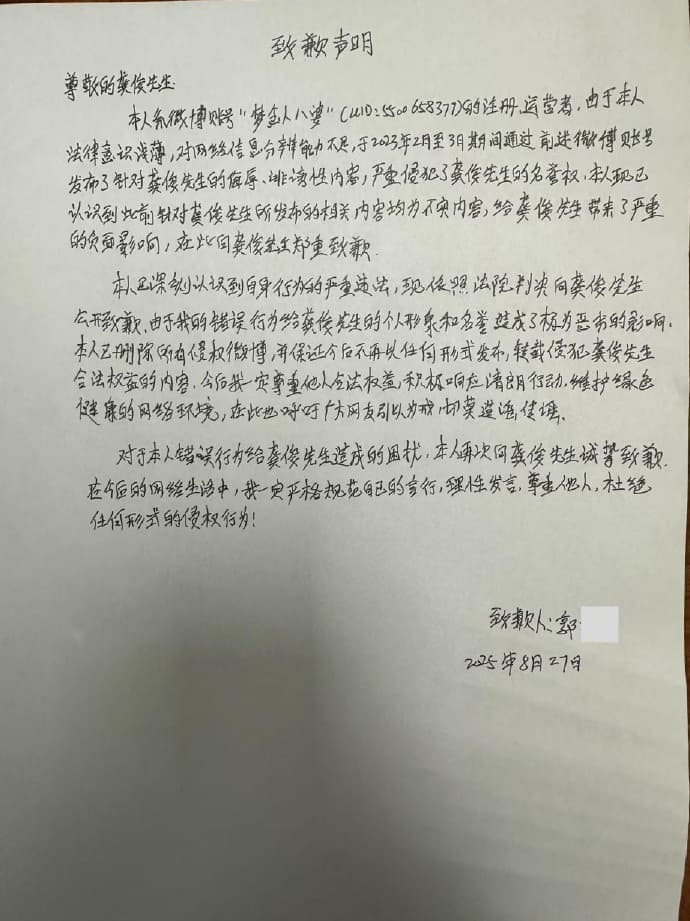 致歉声明
尊敬的龚俊先生:
本人系微博账号“梦尘人八婆”(UID:5500658377)的注册、运营者,由于本人
法律意识浅薄,对网络信息分辨能力不足,于2023年2月至3月期间通过前述微博账号
发布了针对龚俊先生的侮辱、诽谤性内容,严重侵犯了龚俊先生的名誉权,本人现已
认识到此前针对龚俊先生所发布的相关内容均为不实内容,给龚俊先生带来了严重
的负面影响,在此向龚俊先生郑重致歉.
本人已深刻认识到自身行为的严重违法,现依照法院判决向龚俊先生
公开致歉.由于我的错误行为给龚俊先生的个人形象和名誉造成了极为恶劣的影响.
本人已删除所有侵权微博,并保证今后不再以任何形式发布,转载侵犯龚俊先生
合法权益的内容,今后我一定尊重他人合法权益,积极响应清朗行动.维护绿色
健康的网络环境,在此也呼吁广大网友引以为戒,切莫造谣、传谣.
对于本人错误行为给龚俊先生造成的困扰,本人再次向龚俊先生诚挚致歉.
在今后的网络生活中,我一定严格规范自己的言行,理性发言,尊重他人,杜绝
任何形式的侵权行为!
致歉人:郭
2025年8月27日